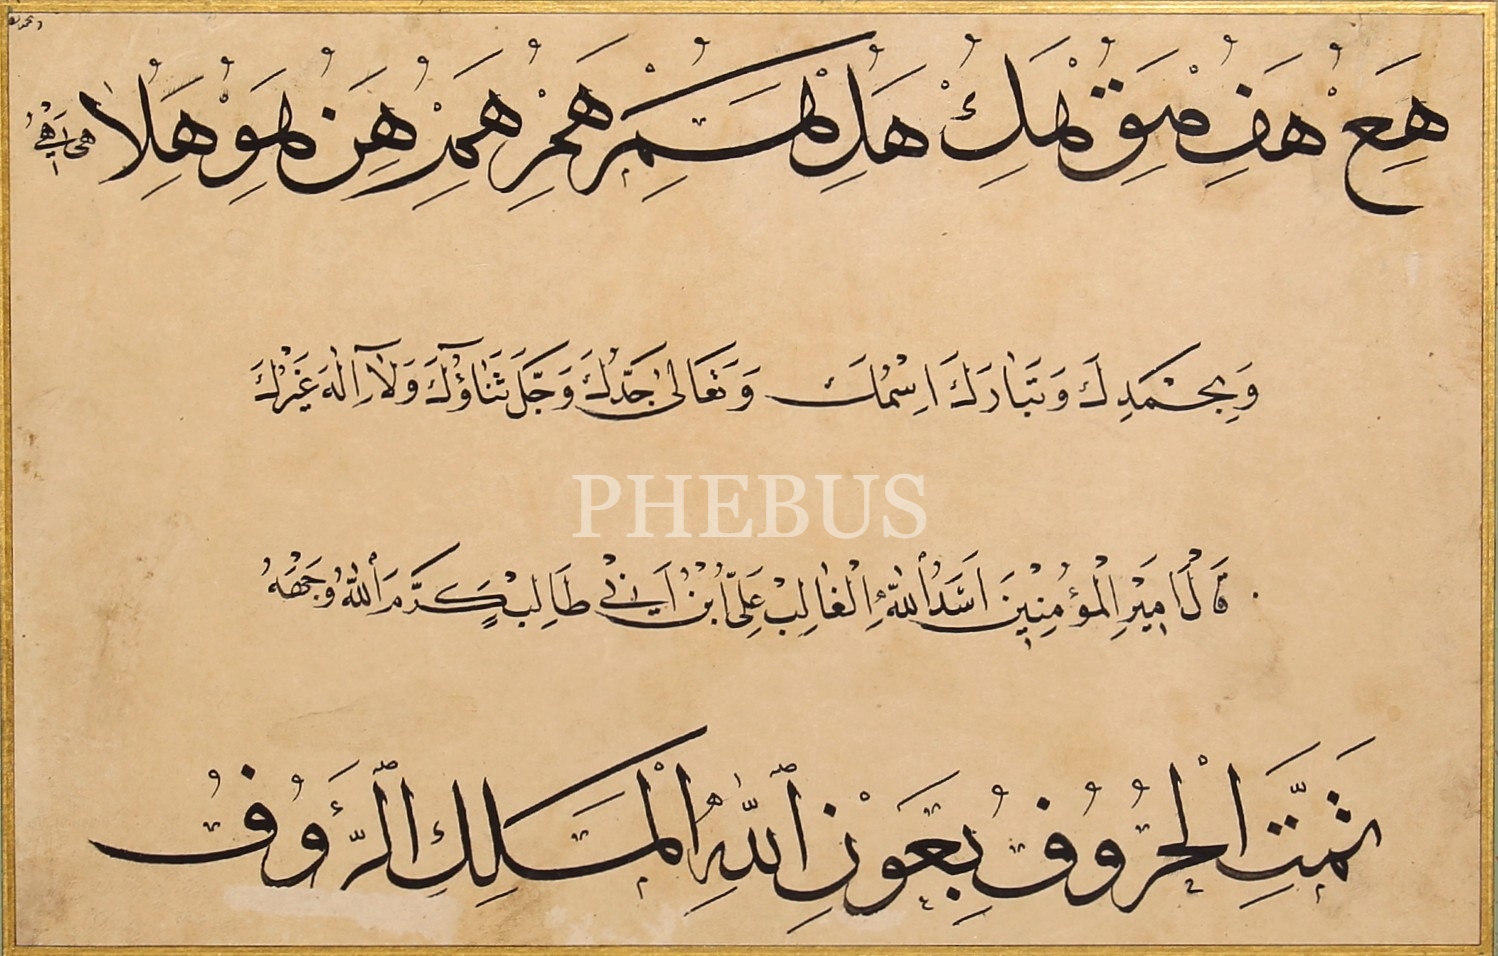 هع هف هق هك هل لهم هم هن هو هلا هى
وَبِحَمْدِكَ وَتَبَارَكَ اسْمُكَ وَتَعَالَى جَدُّكَ وَجَلَّ ثَنَاؤُكَ وَلَا اِلٰهَ غَيْرُكَ
PHEBUS
قَالَ اَمِيرِ الْمُؤْمِنِينَ اَسَدُ اللهِ الْغَالِبْ عَلِىِّ ابْنُ اَبِى طَالِبْ كَرَّمَ اللهُ وَجْهَهُ
تَمَّتِ الْحُرُوفُ بِعَوْنِ اللهِ الْمَلِكِ الرَّؤُفُ